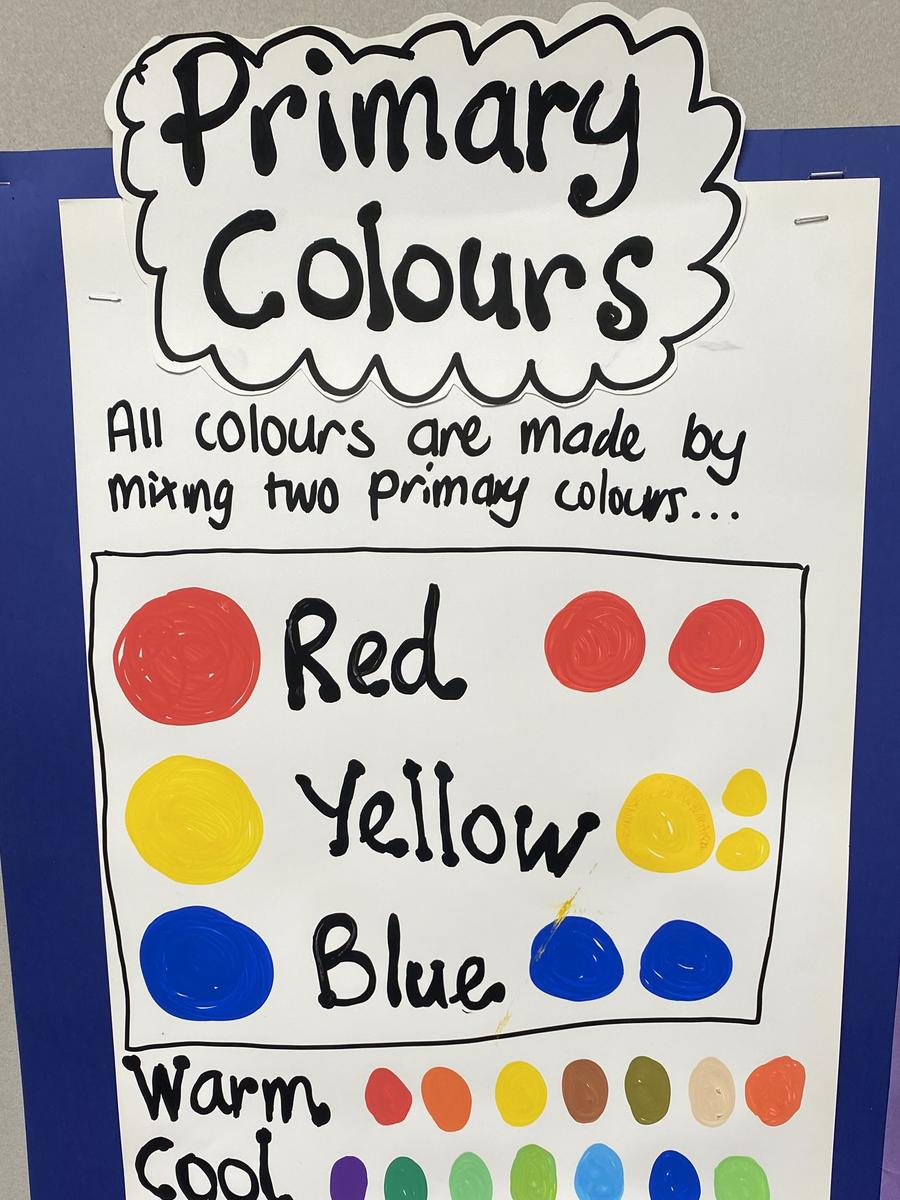 Primary
Colours
All colours are made by
mixing two primary colours...
Red
Yellow
Blue
Warm
Cool